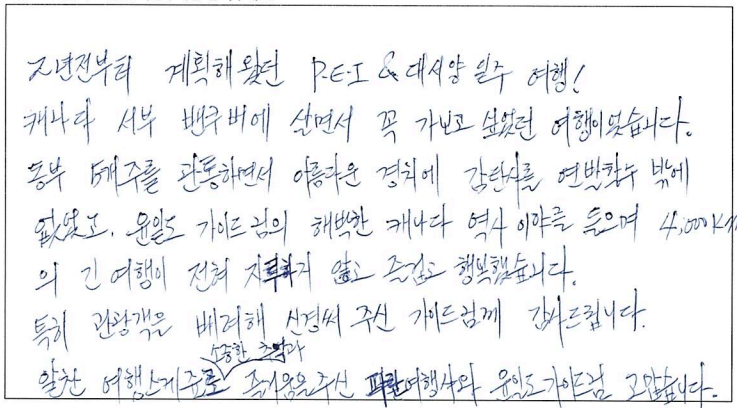 2년전부터 계획해 왔던 P.E.I & 대서양 일주 여행!
캐나다 서부 밴쿠버에 살면서 꼭 가보고 싶었던 여행이었습니다.
동부 5개주를 관통하면서 아름다운 경치에 감탄사를 연발할수 밖에
없었고, 윤일도 가이드님의 해박한 캐나다 역사 이야기를 들으며 4,000km
의 긴 여행이 전혀 지루하지 않고 즐겁고 행복했습니다.
특히 관광객을 배려해 신경써 주신 가이드님께 감사드립니다.
소중한 추억과
알찬 여행스케쥴로 즐거움을 주신 파란여행사와 윤일도가이드님 고맙습니다.